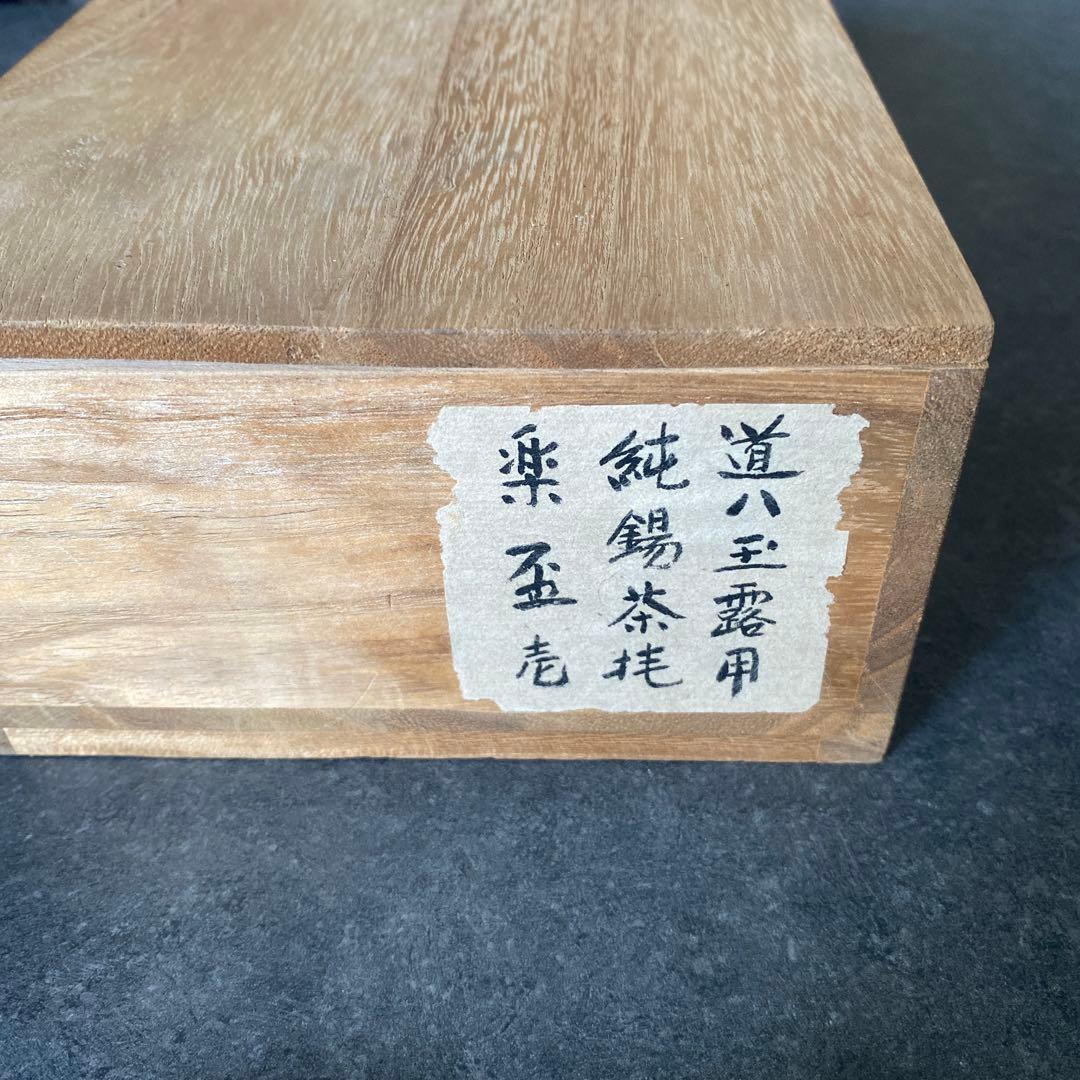 道八玉露用
純錫茶托
楽盃壱